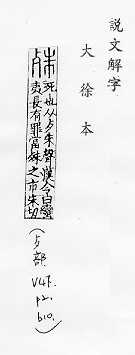 説文解字
大徐本
殊 死也从歺朱聲漢令曰蠻
夷長有罪當殊之市朱切
(歺部
V4下.
p2.
b10.)